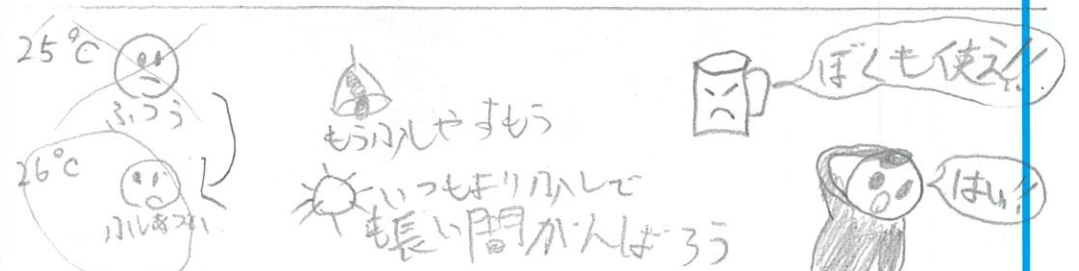 25℃
ふつう
26℃
少しあつい
もう少しやすもう
いつもより少しで
も長い間がんばろう
ぼくも使え!!
はい!!